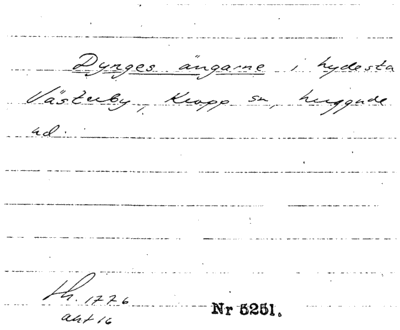 Dynges ängarne i hydesta
Västerby, Knapp sn, huggnde
ud.
th. 1776
akt 16
Nr 5251.